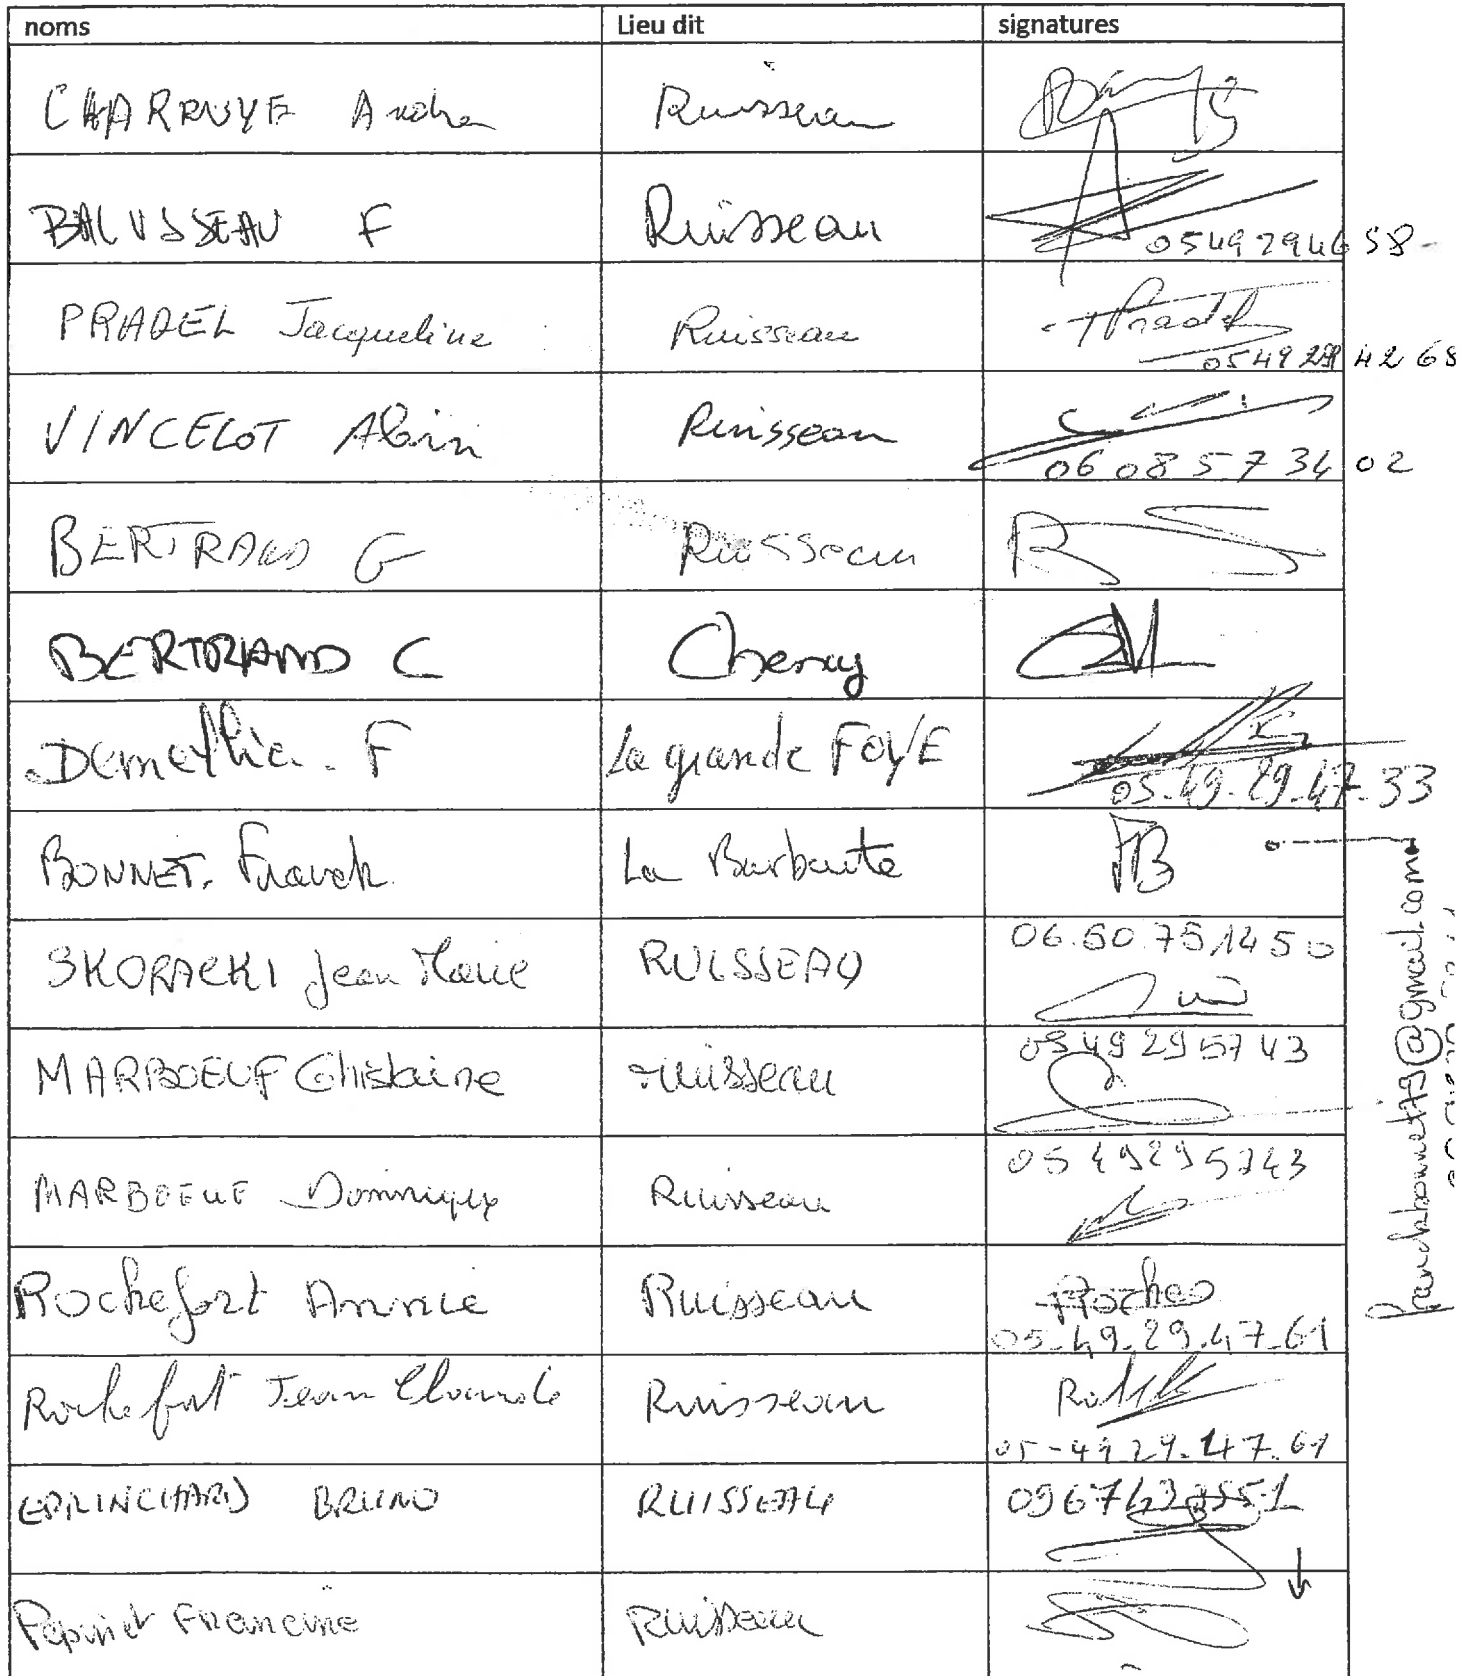 noms Lieu dit signatures
CHARRUYE Andre Ruisseau
BALUSSEAU F Ruisseau
0549294658
PRADEL Jacqueline Ruisseau Pradel
054929 42 68
VINCELOT Alain Ruisseau
06 08 57 34 02
BERTRAND G Ruisseau
BERTRAND C Cheray
Demethie. F La grande FOYE
05.49.29.47.33
BONNET. Franck La Barbaute FB
franckbonnet79@gmail.com
SKORACKI Jean Marie RUISSEAU 06.60.75.14 50
MARBOEUF Ghislaine ruisseau 05 49 29 57 43
MARBOEUF Dominique Ruisseau 05 49 29 57 43
Rochefort Annie Ruisseau
05.49.29.47.61
Rochefort Jean Claude Ruisseau
05-49.29.47.61
EPRINCHARD BRUNO RUISSEAU
Papinet Francine Ruisseau